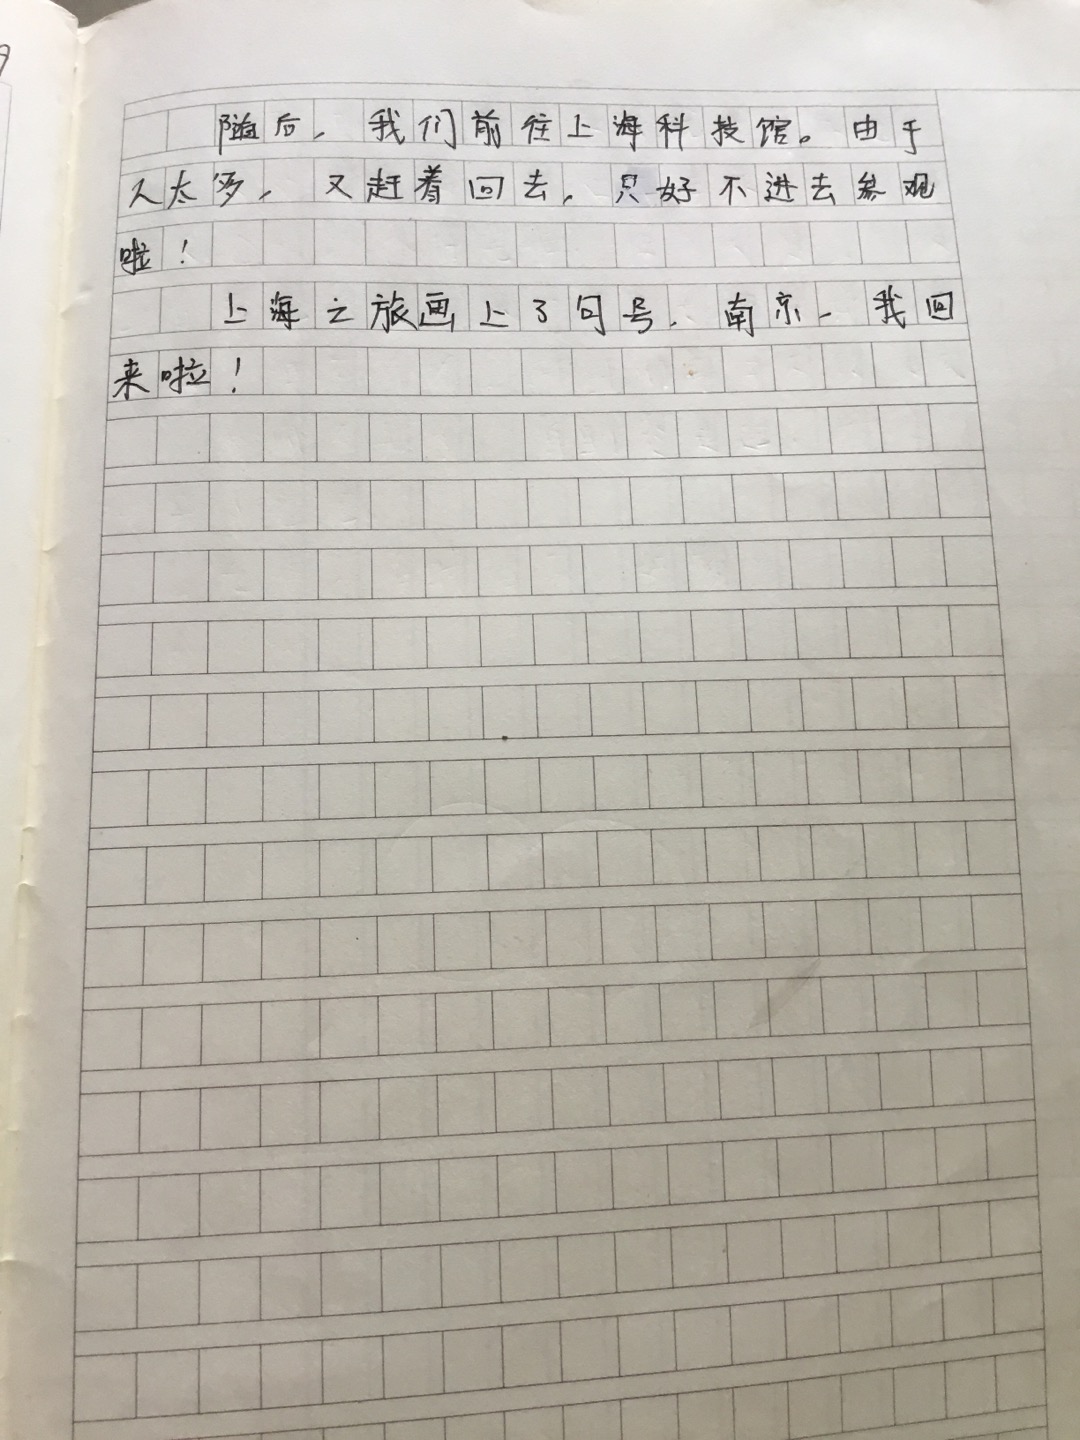 随后，我们前往上海科技馆。由于
人太多，又赶着回去，只好不进去参观
啦！
上海之旅画上了句号，南京，我回
来啦！